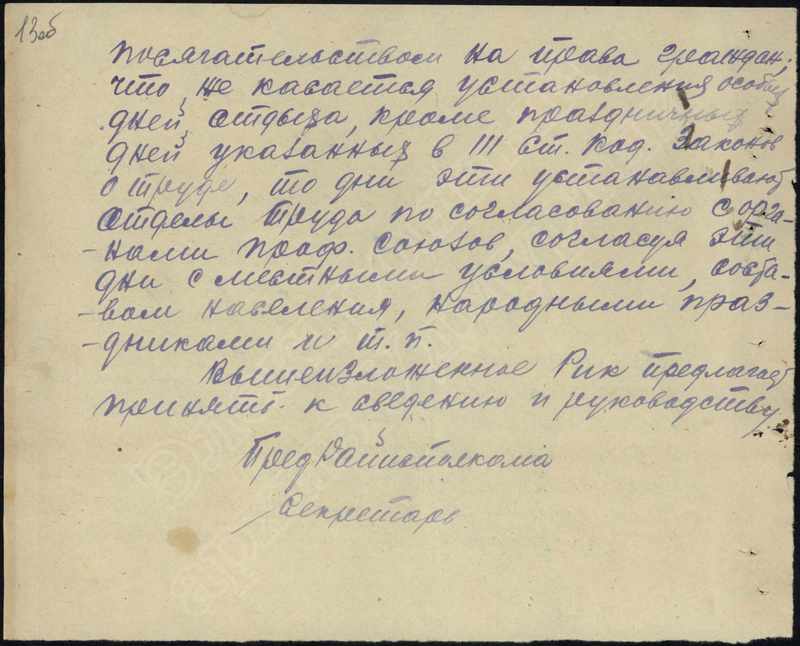 13об
посягательством на права граждан;
что, не касается установления особых
дней, отдыха, кроме праздничных
дней указанных в III ст. Код. Законов
о труде, то дни эти устанавливают
отделы труда по согласованию с орга-
-нами проф. союзов, согласуя эти
дни с местными условиями, соста-
-вом населения, народными праз-
-дниками и т. п.
Вышеизложенное Рик предлагает
принять к сведению и руководству
Пред Райисполкома
Секретарь